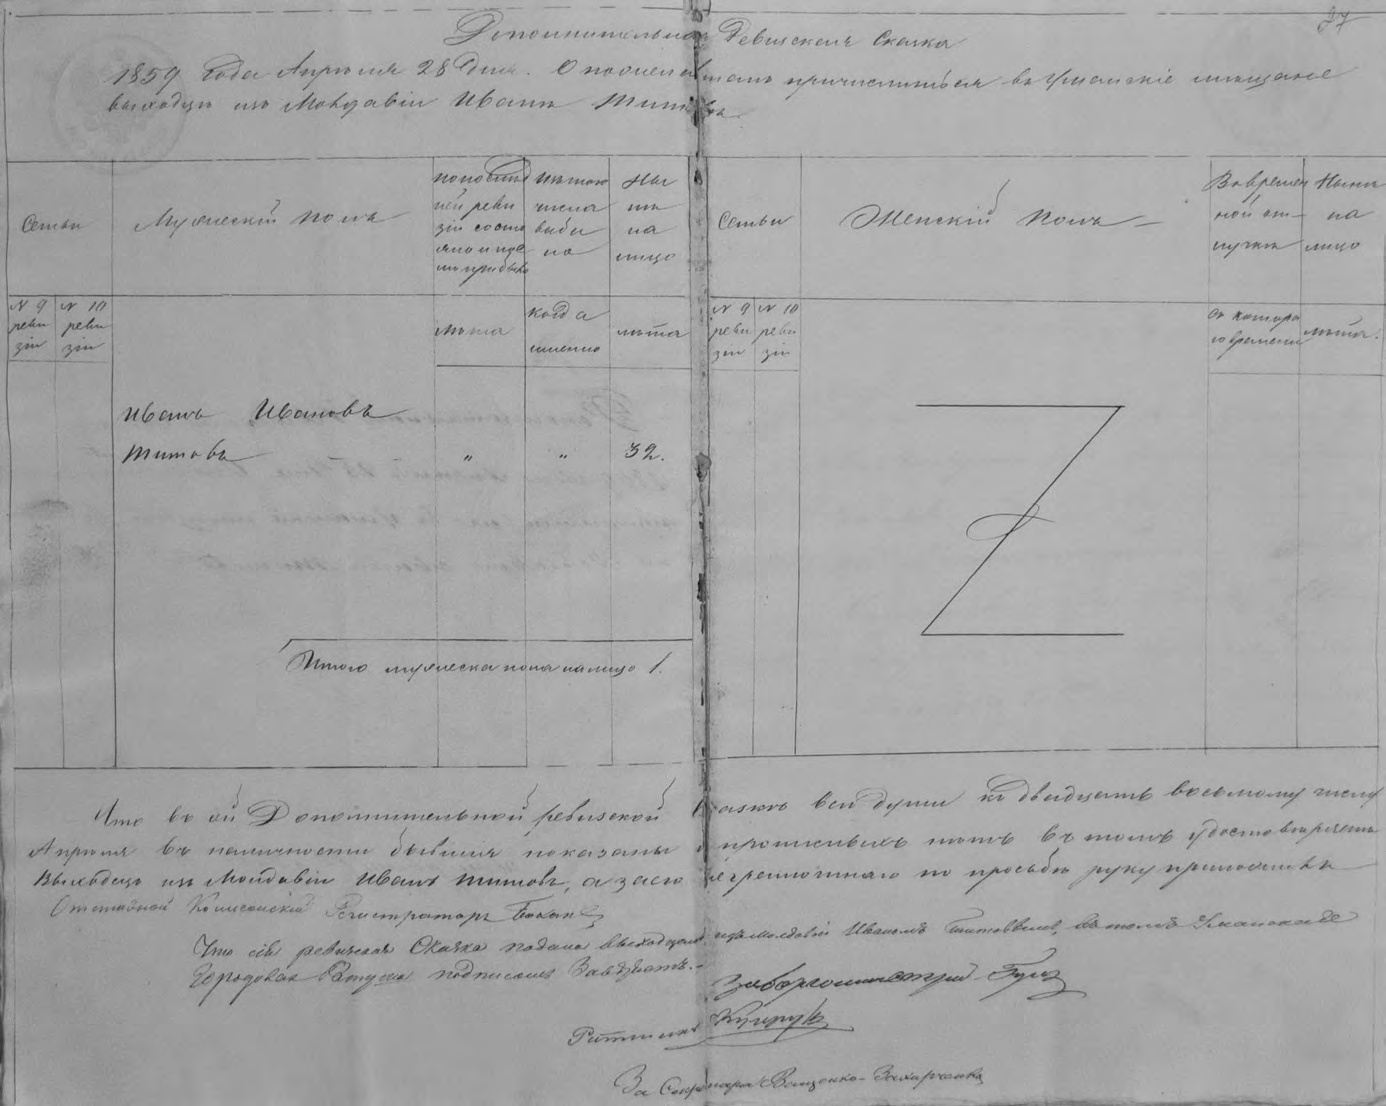 27
Дополнительная Ревизская Сказка
1859 года Апреля 28 дня. О причислиться въ Уманскіе мещане
выходцу изъ Молдавіи Иванъ
Семьи
Мужескій полъ
по послед
ней реви
зіи состо
яло и
прибыло
изъ того
числа
выбы
ло
Ны
нѣ
на
лицо
Семьи
Женскій полъ
Во времен
ной от
лучкѣ
Нынѣ
на
лицо
N 9
реви
зіи
N 10
реви
зіи
лѣта
когда
именно
лѣта
N 9
реви
зіи
N 10
реви
зіи
съ котора
го времени
лѣта.
Иванъ Ивановъ
Титовъ " " 32.
Итого мужеска пола налицо 1.
Что въ сей Дополнительной ревизской сказке все души къ двадцать восьмому числу
Апреля въ наличности бывшія показаны и нетъ въ томъ удостоверяетъ
Выходецъ изъ Молдавіи Иванъ Титовъ, а за его неграмотнаго по прозьбѣ руку приложилъ
Отставной Регистраторъ
Что сія ревизская Сказка подана выходцемъ изъ Молдавіи Иваномъ Титовымъ, въ томъ Уманская
Городовая Ратуша подписомъ
За бургомистра
Ратманъ
За Секретаря